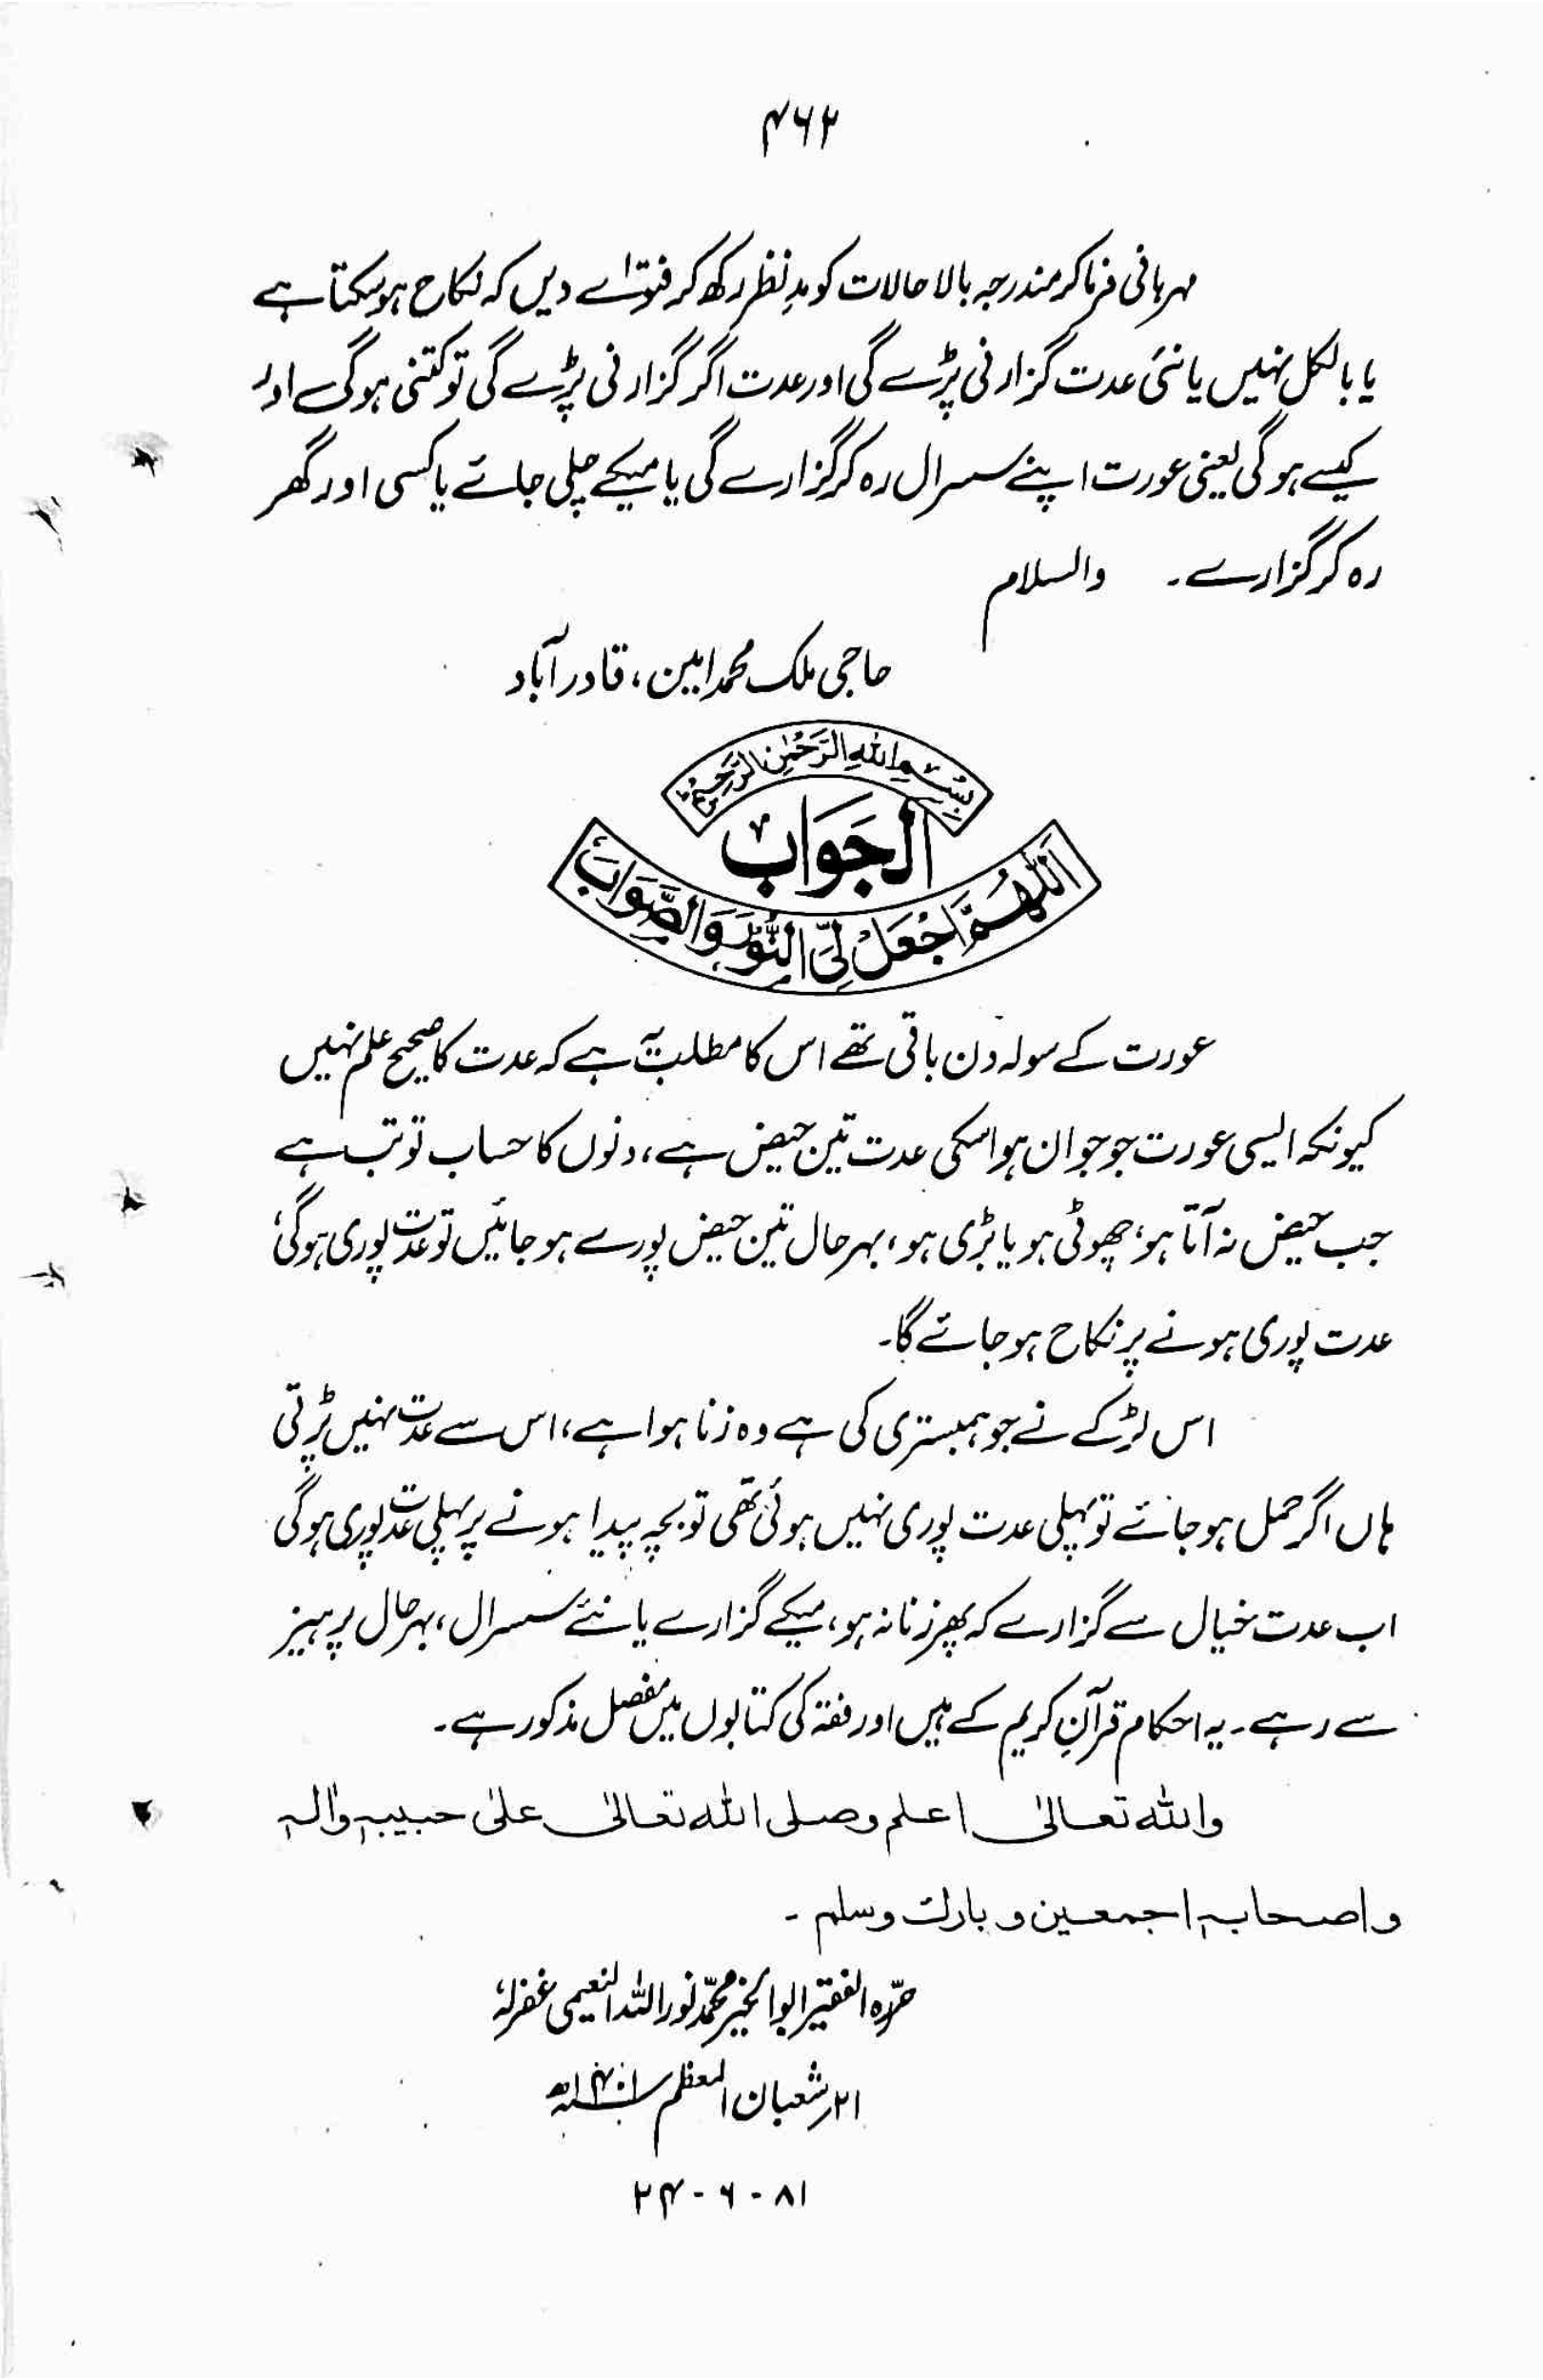 ۴۶۲
مہربانی فرما کر مندرجہ بالا حالات کو مدِ نظر رکھ کر فتوٰے دیں کہ نکاح ہو سکتا ہے
یا بالکل نہیں یا نئی عدت گزارنی پڑے گی اور عدت اگر گزارنی پڑے گی تو کتنی ہوگی اور
کیسے ہوگی یعنی عورت اپنے سسرال رہ کر گزارے گی یا میکے چلی جائے یا کسی اور گھر
رہ کر گزارے۔ والسلام
حاجی ملک محمد امین، قادر آباد
بِسْمِ اللهِ الرَّحْمٰنِ الرَّحِيْمِ
الجَوَابُ
اَللّٰهُمَّ اجْعَلْ لِّيَ النُّوْرَ وَالصَّوَابَ
عورت کے سولہ دن باقی تھے اس کا مطلب یہ ہے کہ عدت کا صحیح علم نہیں
کیونکہ ایسی عورت جو جوان ہو اسکی عدت تین حیض ہے، دنوں کا حساب تو تب ہے
جب حیض نہ آتا ہو، چھوٹی ہو یا بڑی ہو، بہرحال تین حیض پورے ہو جائیں تو عدت پوری ہوگی،
عدت پوری ہونے پر نکاح ہو جائے گا۔
اس لڑکے نے جو ہمبستری کی ہے وہ زنا ہوا ہے، اس سے عدت نہیں پڑتی
ہاں اگر حمل ہو جائے تو پہلی عدت پوری نہیں ہوئی تھی تو بچہ پیدا ہونے پر پہلی عدت پوری ہوگی
اب عدت خیال سے گزارے کہ پھر زنا نہ ہو، میکے گزارے یا نئے سسرال، بہرحال پرہیز
سے رہے۔ یہ احکام قرآنِ کریم کے ہیں اور فقہ کی کتابوں میں مفصل مذکور ہے۔
واللہ تعالیٰ اعلم وصلی اللہ تعالیٰ علیٰ حبیبہٖ واٰلہٖ
واصحابہٖ اجمعین وبارک وسلم۔
حرّرہ الفقیر ابوالخیر محمّد نور اللہ النعیمی غفرلہٗ
۲۱؍ شعبان المعظم ۱۴۰۱ھ
۲۴-۶-۸۱